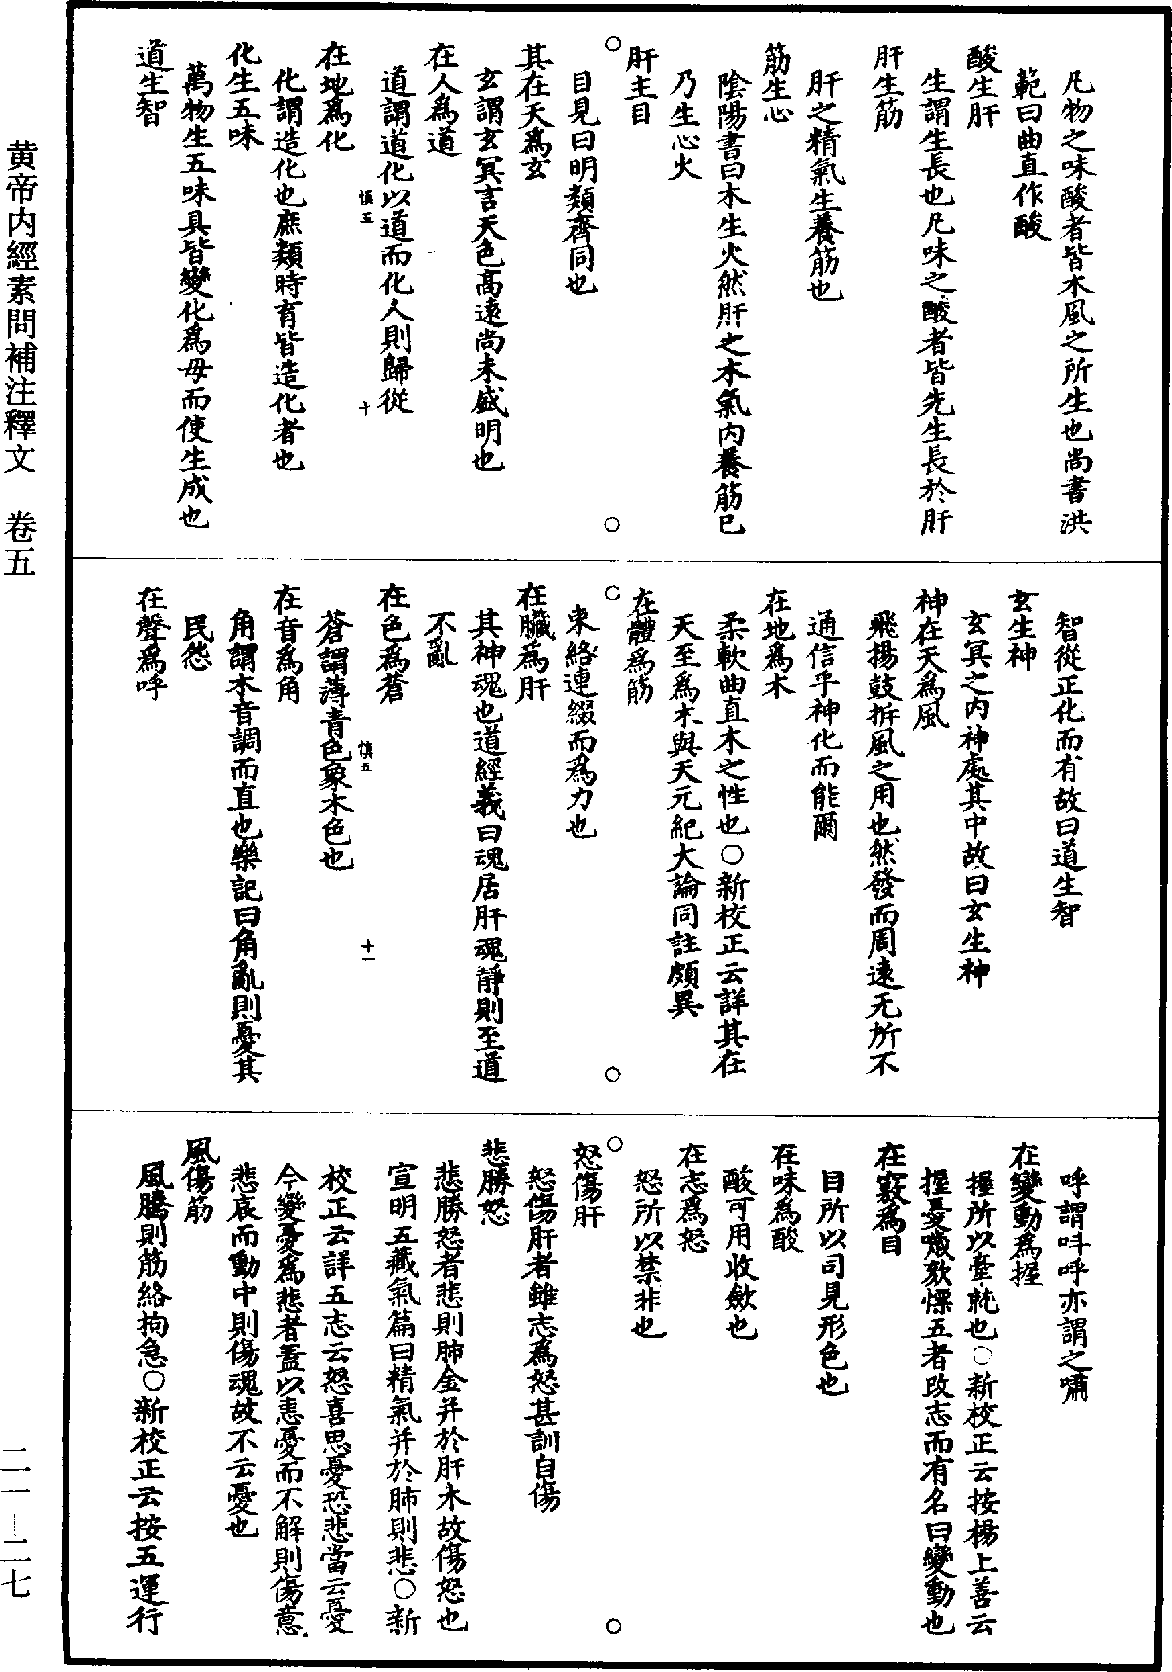 凡物之味酸者皆木風之所生也尚書洪
範曰曲直作酸
酸生肝
生謂生長也凡味之酸者皆先生長於肝
肝生筋
肝之精氣生養筋也
筋生心
陰陽書曰木生火然肝之木氣內養筋已
乃生心火
肝主目
目見曰明類齊同也
其在天爲玄
玄謂玄冥言天色高遠尚未盛明也
在人爲道
道謂道化以道而化人則歸從
慎五 十
在地爲化
化謂造化也庶類時育皆造化者也
化生五味
萬物生五味具皆變化爲母而使生成也
道生智
智從正化而有故曰道生智
玄生神
玄冥之內神處其中故曰玄生神
神在天爲風
飛揚鼓拆風之用也然發而周遠无所不
通信乎神化而能爾
在地爲木
柔軟曲直木之性也○新校正云詳其在
天至爲木與天元紀大論同註頗異
在體爲筋
束絡連綴而爲力也
在臟爲肝
其神魂也道經義曰魂居肝魂靜則至道
不亂
在色爲蒼
慎五 十一
蒼謂薄青色象木色也
在音爲角
角謂木音調而直也樂記曰角亂則憂其
民怨
在聲爲呼
呼謂叫呼亦謂之嘯
在變動爲握
握所以牽就也○新校正云按楊上善云
握憂噦欬慄五者改志而有名曰變動也
在竅爲目
目所以司見形色也
在味爲酸
酸可用收斂也
在志爲怒
怒所以禁非也
怒傷肝
怒傷肝者雖志爲怒甚訓自傷
悲勝怒
悲勝怒者悲則肺金并於肝木故傷怒也
宣明五藏氣篇曰精氣并於肺則悲○新
校正云詳五志云怒喜思憂恐悲當云憂
今變憂爲悲者蓋以恚憂而不解則傷意
悲哀而動中則傷魂故不云憂也
風傷筋
風勝則筋絡拘急○新校正云按五運行
黄帝内經素問補注釋文 卷五
二一—二七